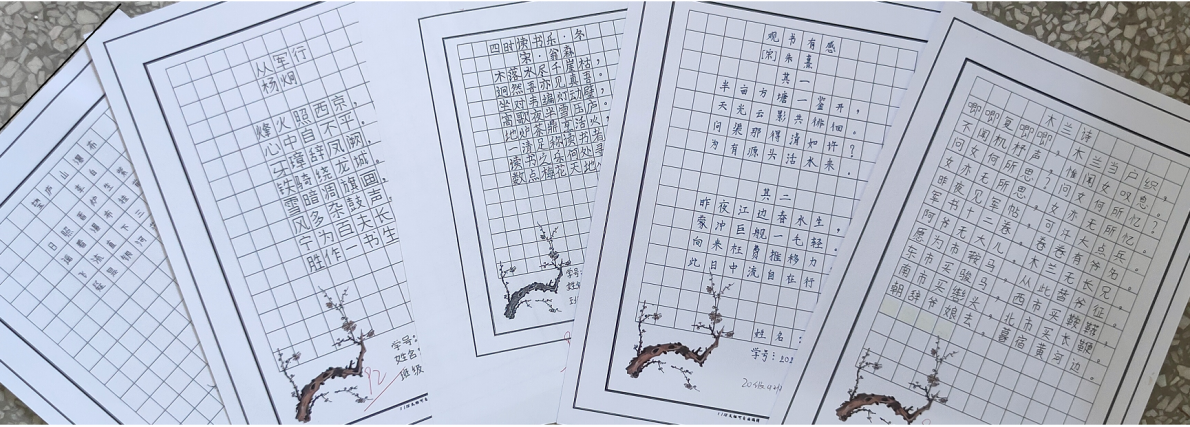 望庐山瀑布
从军行
杨炯
烽火照西京，
心中自不平。
牙璋辞凤阙，
铁骑绕龙城。
雪暗凋旗画，
风多杂鼓声，
宁为百夫长
胜作一书生
学号：
姓名：
班级
92
四时读书乐·冬
宋·翁森
木落水尽千崖枯，
迥然吾亦见真吾。
坐对韦编灯动壁，
高歌夜半雪压庐。
地炉茶鼎烹活火，
一清足称读书者
读书之乐何处寻
数点梅花天地
学号：
观书有感
[宋]朱熹
其一
半亩方塘一鉴开，
天光云影共徘徊。
问渠那得清如许？
为有源头活水来。
其二
昨夜江边春水生，
蒙冲巨舰一毛轻。
向来枉费推移力
此日中流自在行
姓名：
学号：
木兰诗
唧唧复唧唧，木兰当户织，
不闻机杼声，惟闻女叹息。
问女何所思？问女何所忆？
女亦无所思，女亦无所忆。
昨夜见军帖，可汗大点兵。
军书十二卷，卷卷有爷名。
阿爷无大儿，木兰无长兄，
愿为市鞍马，从此替爷征。
东市买骏马，西市买鞍鞯，
南市买辔头，北市买长鞭。
朝辞爷娘去，暮宿黄河边。